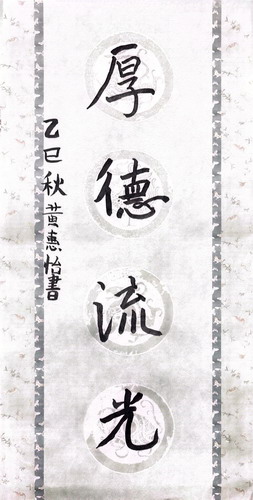 厚德流光
乙巳秋黄惠怡書